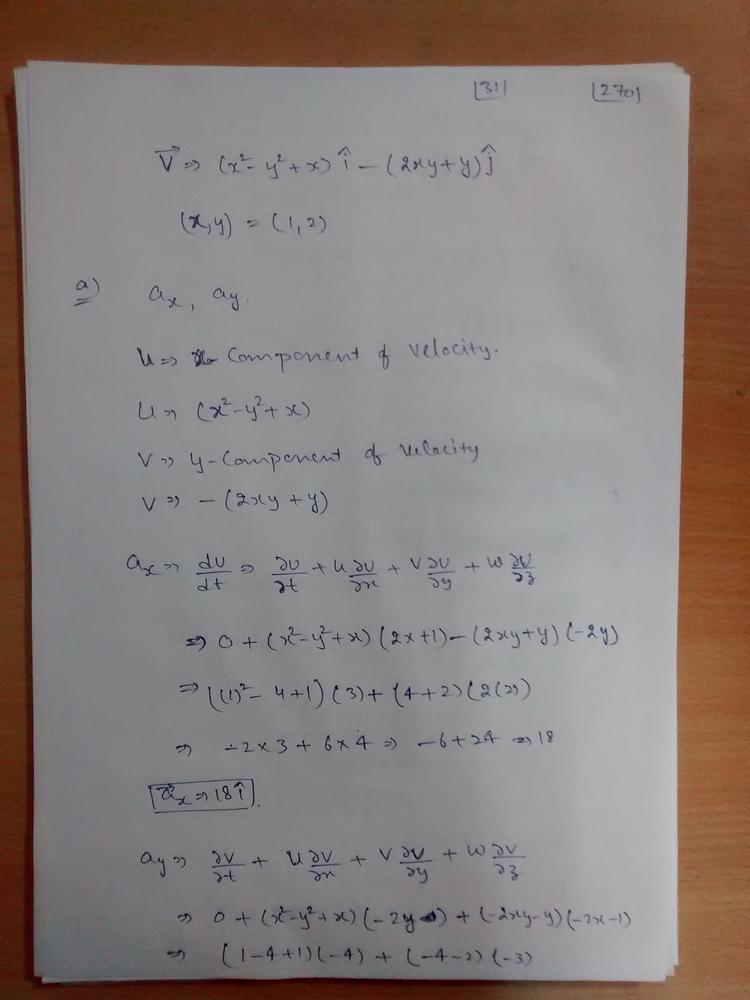 |31| |270|
V⃗ ⇒ (x²-y²+x) î - (2xy+y) ĵ
(x,y) = (1,2)
a) ax, ay.
u ⇒ x- Component of velocity.
u ⇒ (x²-y²+x)
v ⇒ y-Component of velocity
v ⇒ -(2xy+y)
ax ⇒ du/dt ⇒ ∂u/∂t + u ∂u/∂x + v ∂u/∂y + w ∂u/∂z
⇒ 0 + (x²-y²+x) (2x+1) - (2xy+y) (-2y)
⇒ ((1)² - 4+1) (3) + (4+2) (2(2))
⇒ -2×3 + 6×4 ⇒ -6+24 ⇒ 18
a⃗x ⇒ 18î.
ay ⇒ ∂v/∂t + u ∂v/∂x + v ∂v/∂y + w ∂v/∂z
⇒ 0 + (x²-y²+x) (-2y) + (-2xy-y) (-2x-1)
⇒ (1-4+1) (-4) + (-4-2) (-3)